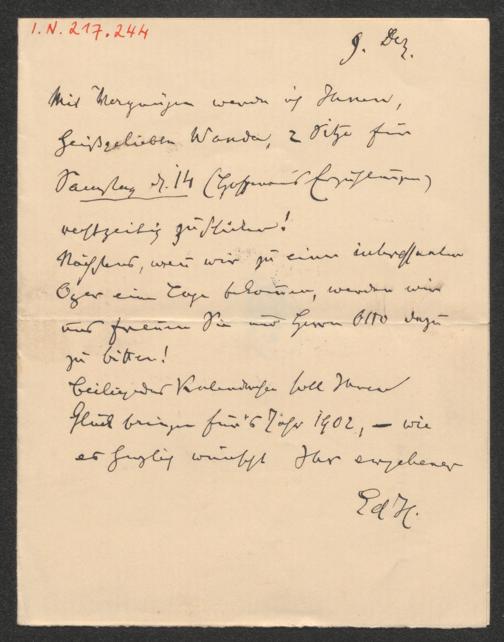 I.N. 217.244
9. Dez.
Mit Vergnügen werde ich Ihnen,
heißgeliebte Wanda, 2 Sitze für
Samstag d. 14 (Hoffmann's Erzählungen)
rechtzeitig zuschicken!
Nächstens, wenn wir zu einer interessanten
Oper eine Loge bekommen, werden wir
uns freuen Sie und Herrn Otto dazu
zu bitten!
Beiliegendes soll Ihnen
Glück bringen für's Jahr 1902, – wie
es herzlich wünscht Ihr ergebener
Ed H.